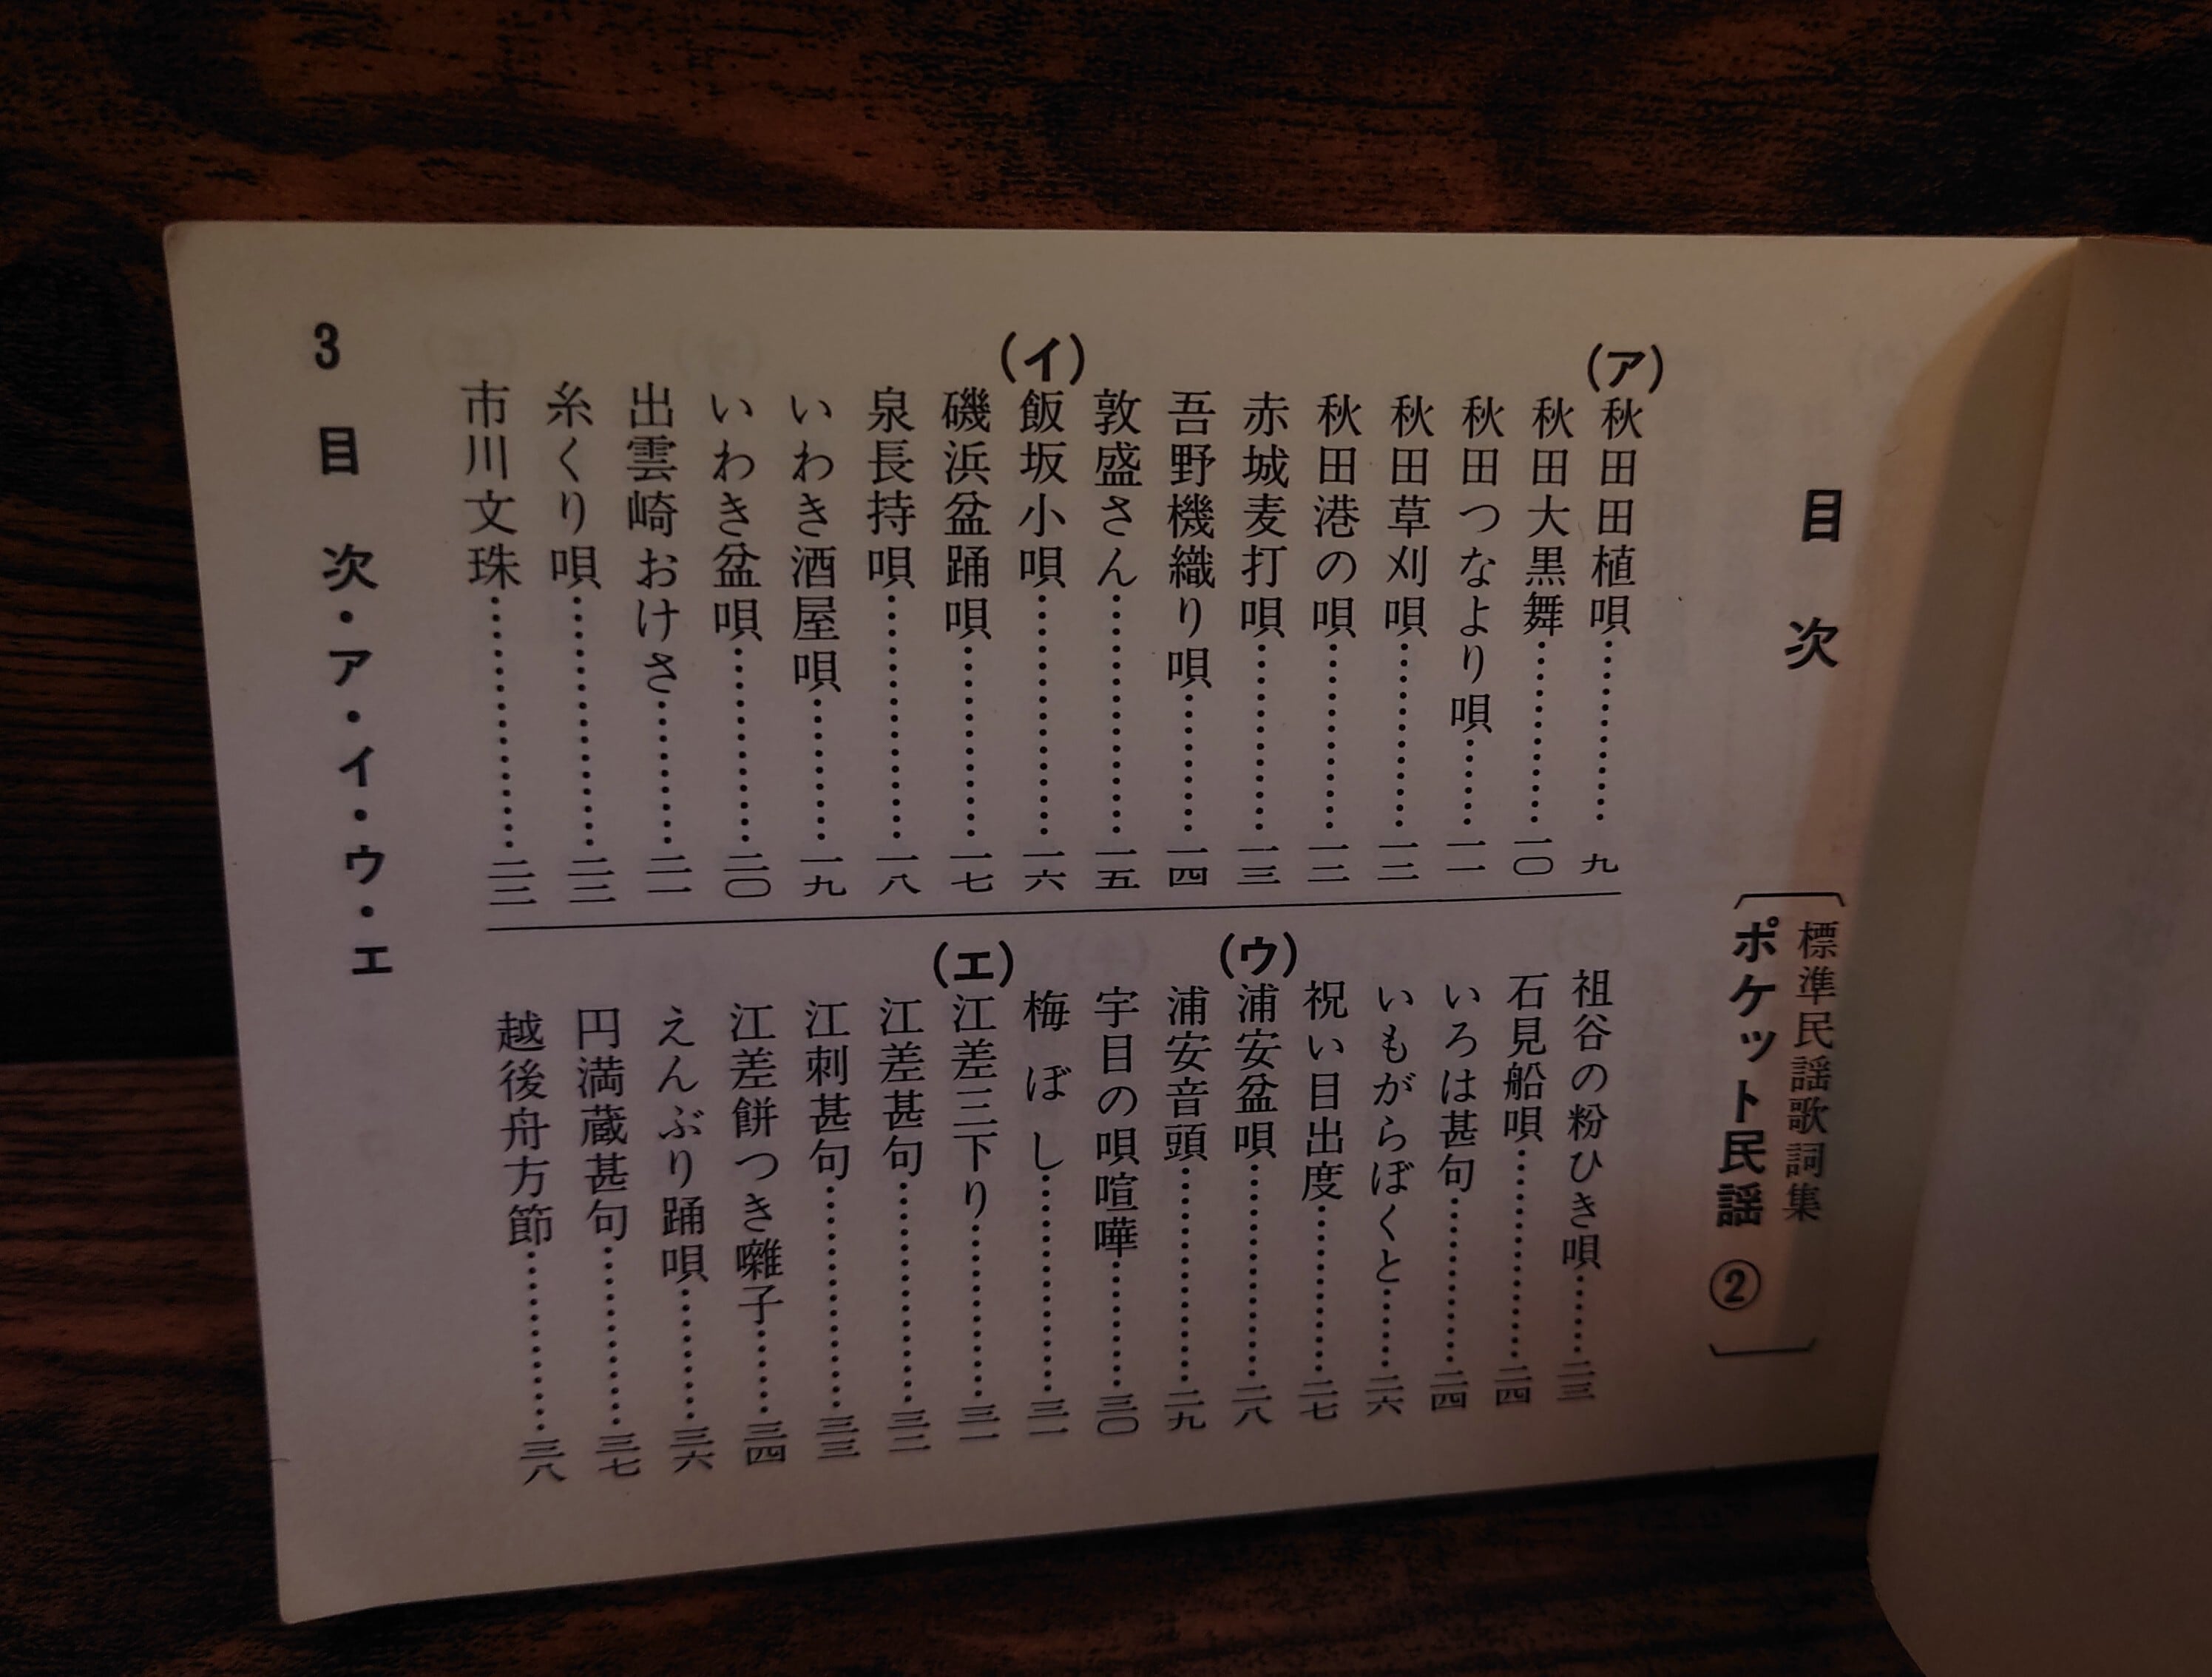 目次
標準民謡歌詞集
ポケット民謡②
(ア)
秋田田植唄……………九
秋田大黒舞……………一〇
秋田つなより唄………一一
秋田草刈唄……………一二
秋田港の唄……………一二
赤城麦打唄……………一三
吾野機織り唄…………一四
敦盛さん………………一五
(イ)
飯坂小唄………………一六
磯浜盆踊唄……………一七
泉長持唄………………一八
いわき酒屋唄…………一九
いわき盆唄……………二〇
出雲崎おけさ…………二一
糸くり唄………………二二
市川文珠………………二二
祖谷の粉ひき唄………二三
石見船唄………………二四
いろは甚句……………二四
いもがらぼくと………二六
祝い目出度……………二七
(ウ)
浦安盆唄………………二八
浦安音頭………………二九
宇目の唄喧嘩…………三〇
梅ぼし…………………三一
(エ)
江差三下り……………三一
江差甚句………………三二
江刺甚句………………三三
江差餅つき囃子………三四
えんぶり踊唄…………三六
円満蔵甚句……………三七
越後舟方節……………三八
3 目次・ア・イ・ウ・エ